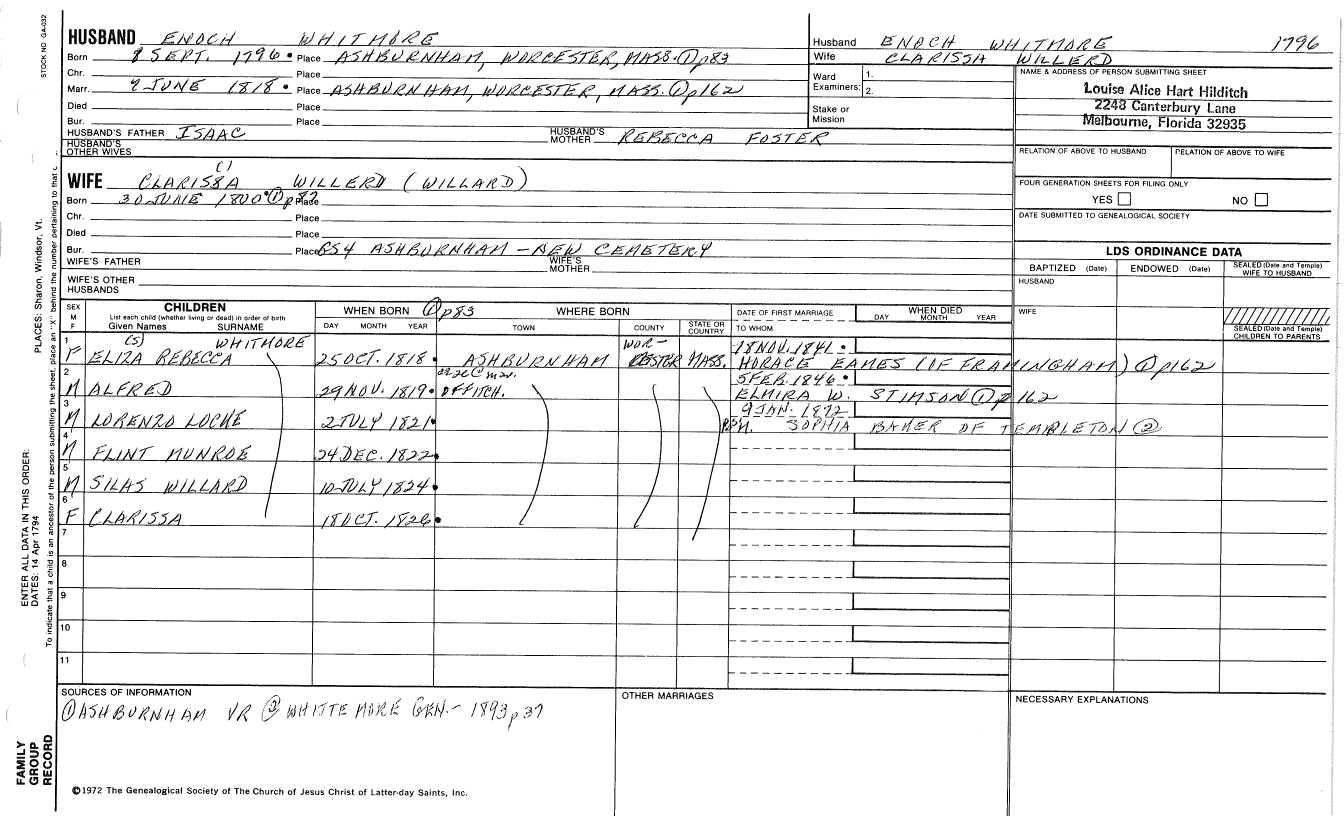 STOCK NO GA-032
PLACES: Sharon, Windsor, Vt.
ENTER ALL DATA IN THIS ORDER:
DATES: 14 Apr 1794
To indicate that a child is an ancestor of the person submitting the sheet, place an "X" behind the number pertaining to that c
FAMILY
GROUP
RECORD
HUSBAND ENOCH WHITMORE
Born 8 SEPT. 1796 • Place ASHBURNHAM, WORCESTER, MASS. ① p83
Chr. Place
Marr. 9 JUNE 1818 • Place ASHBURNHAM, WORCESTER, MASS. ① p162
Died Place
Bur. Place
HUSBAND'S FATHER ISAAC HUSBAND'S MOTHER REBECCA FOSTER
HUSBAND'S OTHER WIVES
( )
WIFE CLARISSA WILLERD (WILLARD)
Born 30 JUNE 1800 • ① p 83 Place
Chr. Place
Died Place
Bur. Place 854 ASHBURNHAM - NEW CEMETERY
WIFE'S FATHER WIFE'S MOTHER
WIFE'S OTHER HUSBANDS
Husband ENOCH WHITMORE 1796
Wife CLARISSA WILLERD
Ward Examiners: 1.
2.
Stake or Mission
NAME & ADDRESS OF PERSON SUBMITTING SHEET
Louise Alice Hart Hilditch
2248 Canterbury Lane
Melbourne, Florida 32935
RELATION OF ABOVE TO HUSBAND RELATION OF ABOVE TO WIFE
FOUR GENERATION SHEETS FOR FILING ONLY
YES NO
DATE SUBMITTED TO GENEALOGICAL SOCIETY
LDS ORDINANCE DATA
BAPTIZED (Date) ENDOWED (Date) SEALED (Date and Temple) WIFE TO HUSBAND
HUSBAND
WIFE
SEALED (Date and Temple) CHILDREN TO PARENTS
SEX M F CHILDREN WHEN BORN ① p83 WHERE BORN DATE OF FIRST MARRIAGE WHEN DIED
List each child (whether living or dead) in order of birth
Given Names SURNAME DAY MONTH YEAR TOWN COUNTY STATE OR COUNTRY TO WHOM DAY MONTH YEAR
1 (S) WHITMORE WOR- 18 NOV. 1841 •
F ELIZA REBECCA 25 OCT. 1818 • ASHBURNHAM CESTER MASS. HORACE EAMES (OF FRAMINGHAM) ① p162
2 5 FEB. 1846 •
M ALFRED 29 NOV. 1819 • OF FITCH. ELMIRA W. STIMSON ① p 162
3 9 JAN. 1872
M LORENZO LOCKE 2 JULY 1821 • M. SOPHIA BAKER OF TEMPLETON ②
4
M FLINT MUNROE 24 DEC. 1822 •
5
M SILAS WILLARD 10 JULY 1824 •
6
F CLARISSA 18 OCT. 1826 •
7
8
9
10
11
SOURCES OF INFORMATION
① ASHBURNHAM VR ② WHITTEMORE GEN. - 1893 p 37
OTHER MARRIAGES
NECESSARY EXPLANATIONS
©1972 The Genealogical Society of The Church of Jesus Christ of Latter-day Saints, Inc.